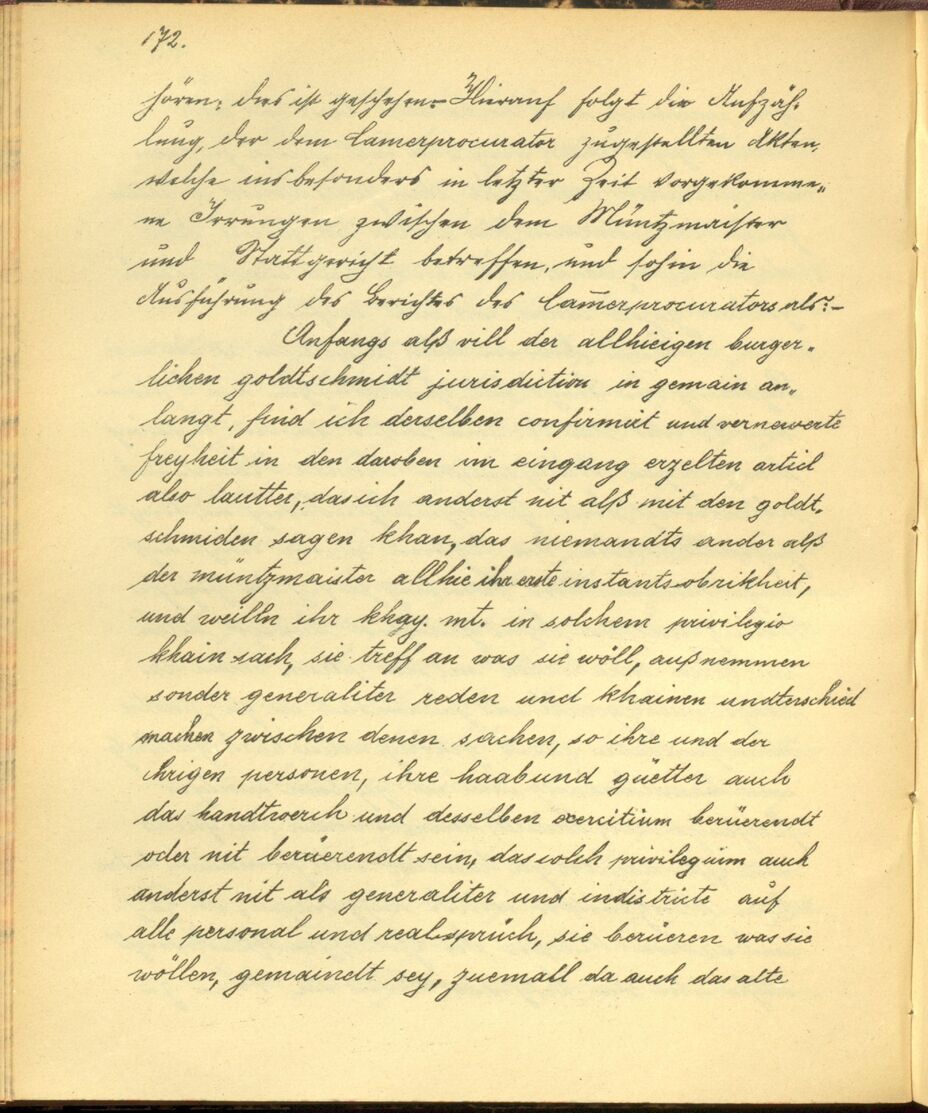 172.
hören; dies ist geschehen.– Hierauf folgt die Aufzäh-
lung, der dem Camerprocurator zugestellten Akten,
welche insbesonders in letzter Zeit vorgekomme-
ne Irrungen zwischen dem Müntzmaister
und Stattgericht betreffen, und sohin die
Ausführung des Berichtes des Cam̅erprocurators als:–
Anfangs alß vill der allhieigen burger-
lichen goldtschmidt jurisdiction in gemain an-
langt, find ich derselben confirmirt und vernewerte
freyheit in den daroben im eingang erzelten articl
also lautter, das ich anderst nit alß mit den goldt-
schmiden sagen khan, das niemandts ander alß
der müntzmaister allhie ihr erste instants obrikheit,
und weilln ihr khay. mt. in solchem privilegio
khain sach, sie treff an was sie wöll, außnemmen
sonder generaliter reden und khainen undterschied
machen zwischen denen sachen, so ihre und der
ihrigen personen, ihre haab und güetter auch
das handtwerch und desselben exercitium berüerendt
oder nit berüerendt sein, das solch privilegium auch
anderst nit als generaliter und indistricte auf
alle personal und real sprüch, sie berüeren was sie
wöllen, gemaindt sey, zuemall da auch das alte